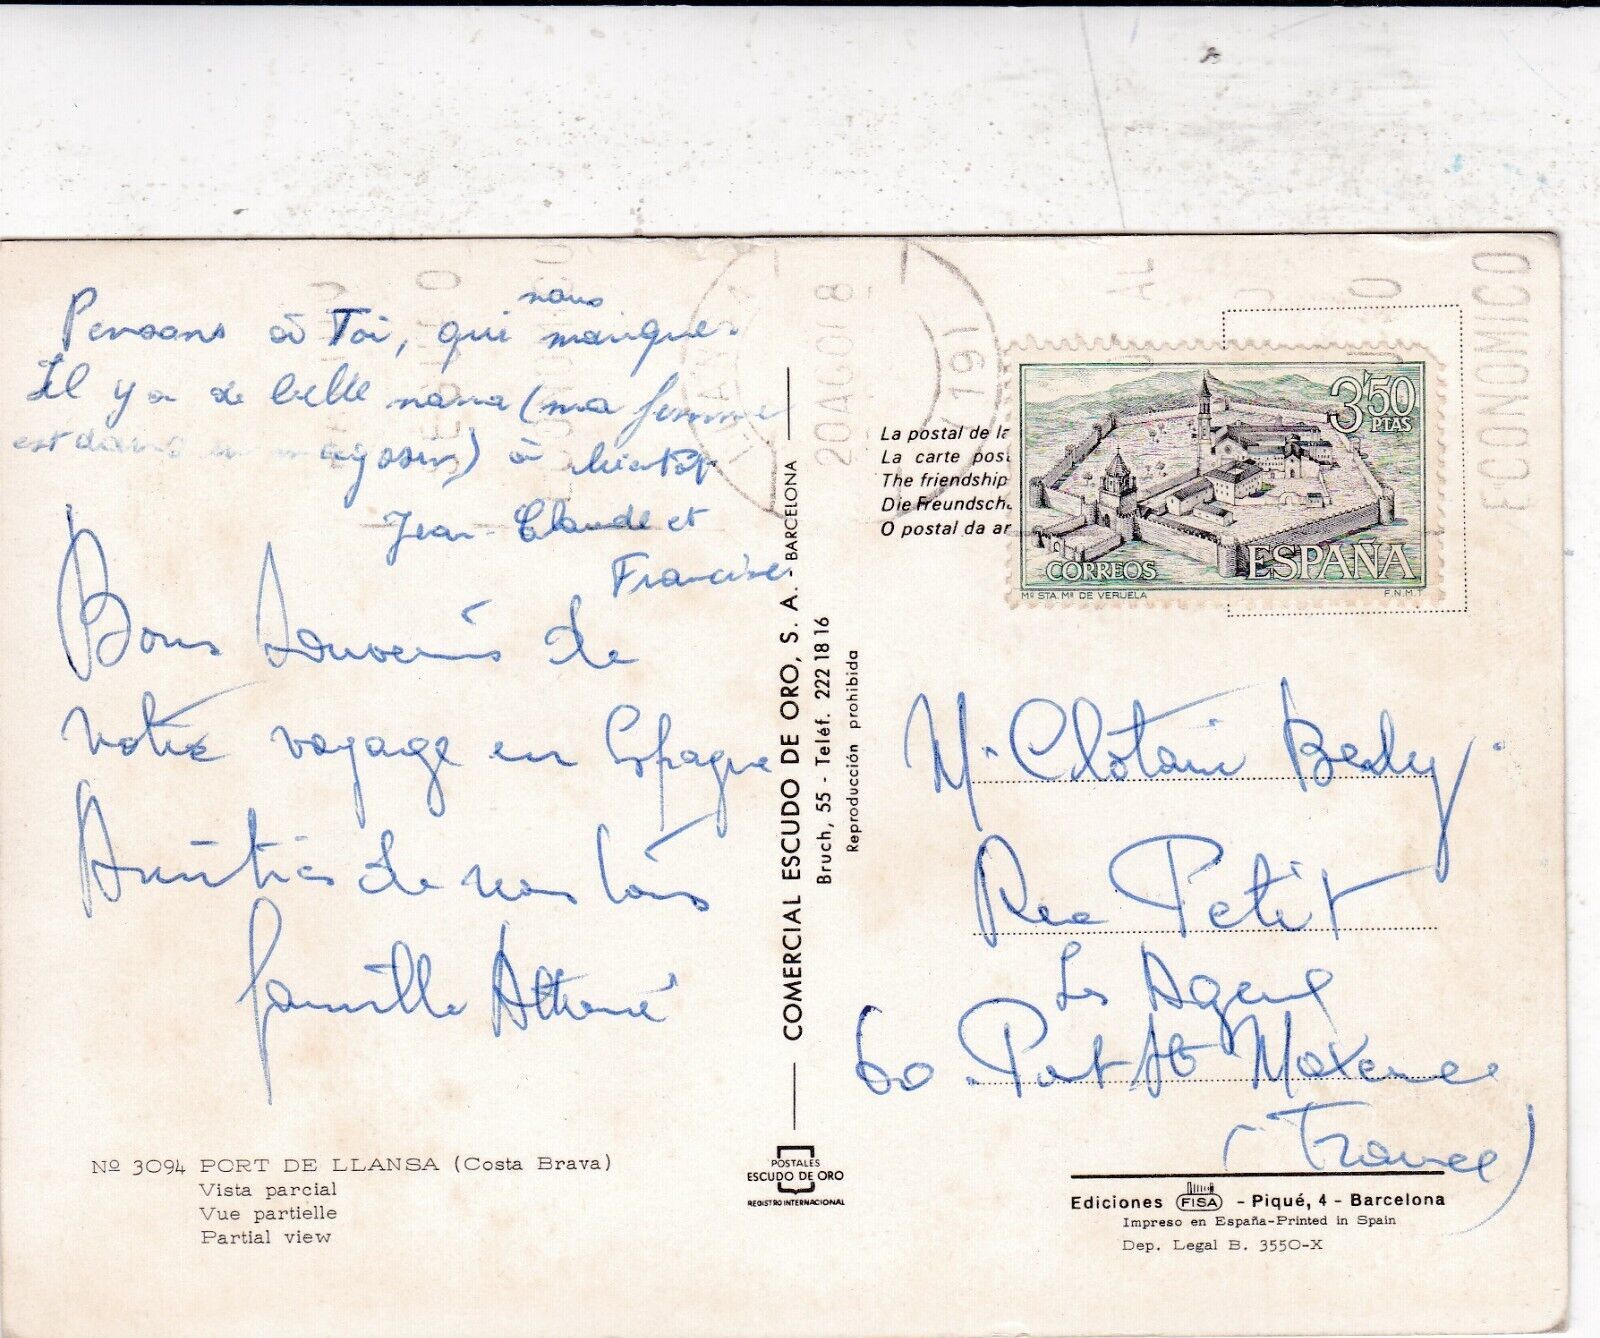 nous
Pensons à Toi, qui manque.
Il y a de belle nana (ma femme
est dans un magasin) à bientôt
Jean-Claude et
Francise
Bons Souvenirs de
notre voyage en Espagne
Amitiés de nous tous
famille
Nº 3094 PORT DE LLANSA (Costa Brava)
Vista parcial
Vue partielle
Partial view
COMERCIAL ESCUDO DE ORO, S. A. - BARCELONA
Bruch, 55 - Teléf. 222 18 16
Reproducción prohibida
POSTALES
ESCUDO DE ORO
REGISTRO INTERNACIONAL
20 AGO
ECONOMICO
La postal de la
La carte post
The friendship
Die Freundsch
O postal da am
3'50
PTAS
CORREOS
ESPAÑA
Mº STA. Mª DE VERUELA
F.N.M.T
Mr Clotaire
Rue Petit
Les Ageux
60 Pont Ste Maxence
(France)
Ediciones FISA - Piqué, 4 - Barcelona
Impreso en España-Printed in Spain
Dep. Legal B. 3550-X